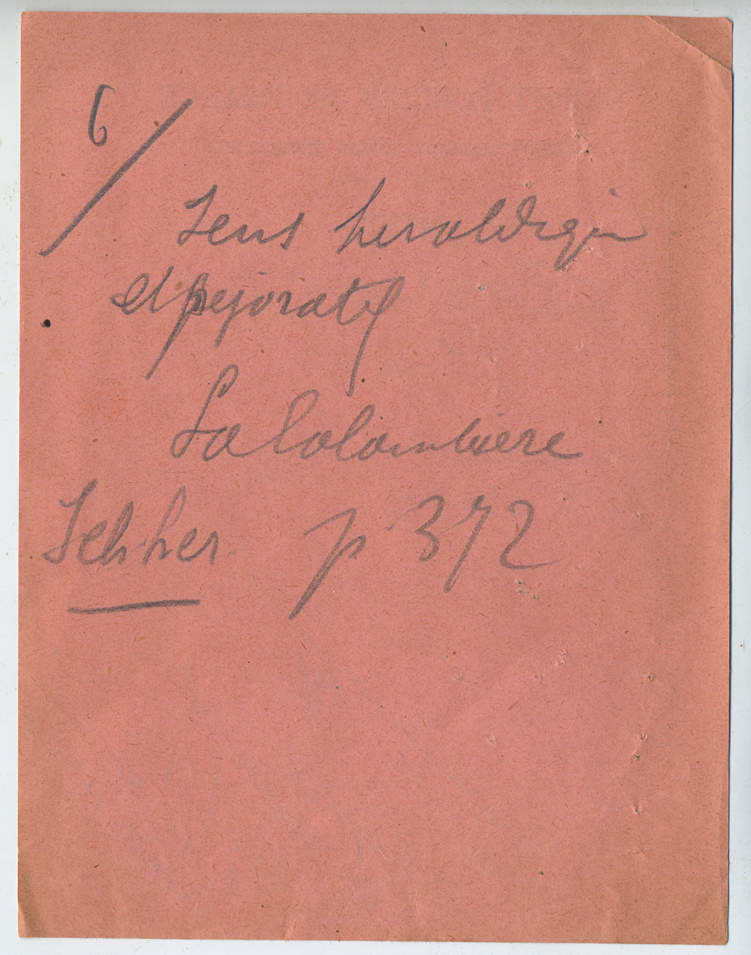 6/
Sens heraldique
et pejoratif
La Colombiere
Scher p 372